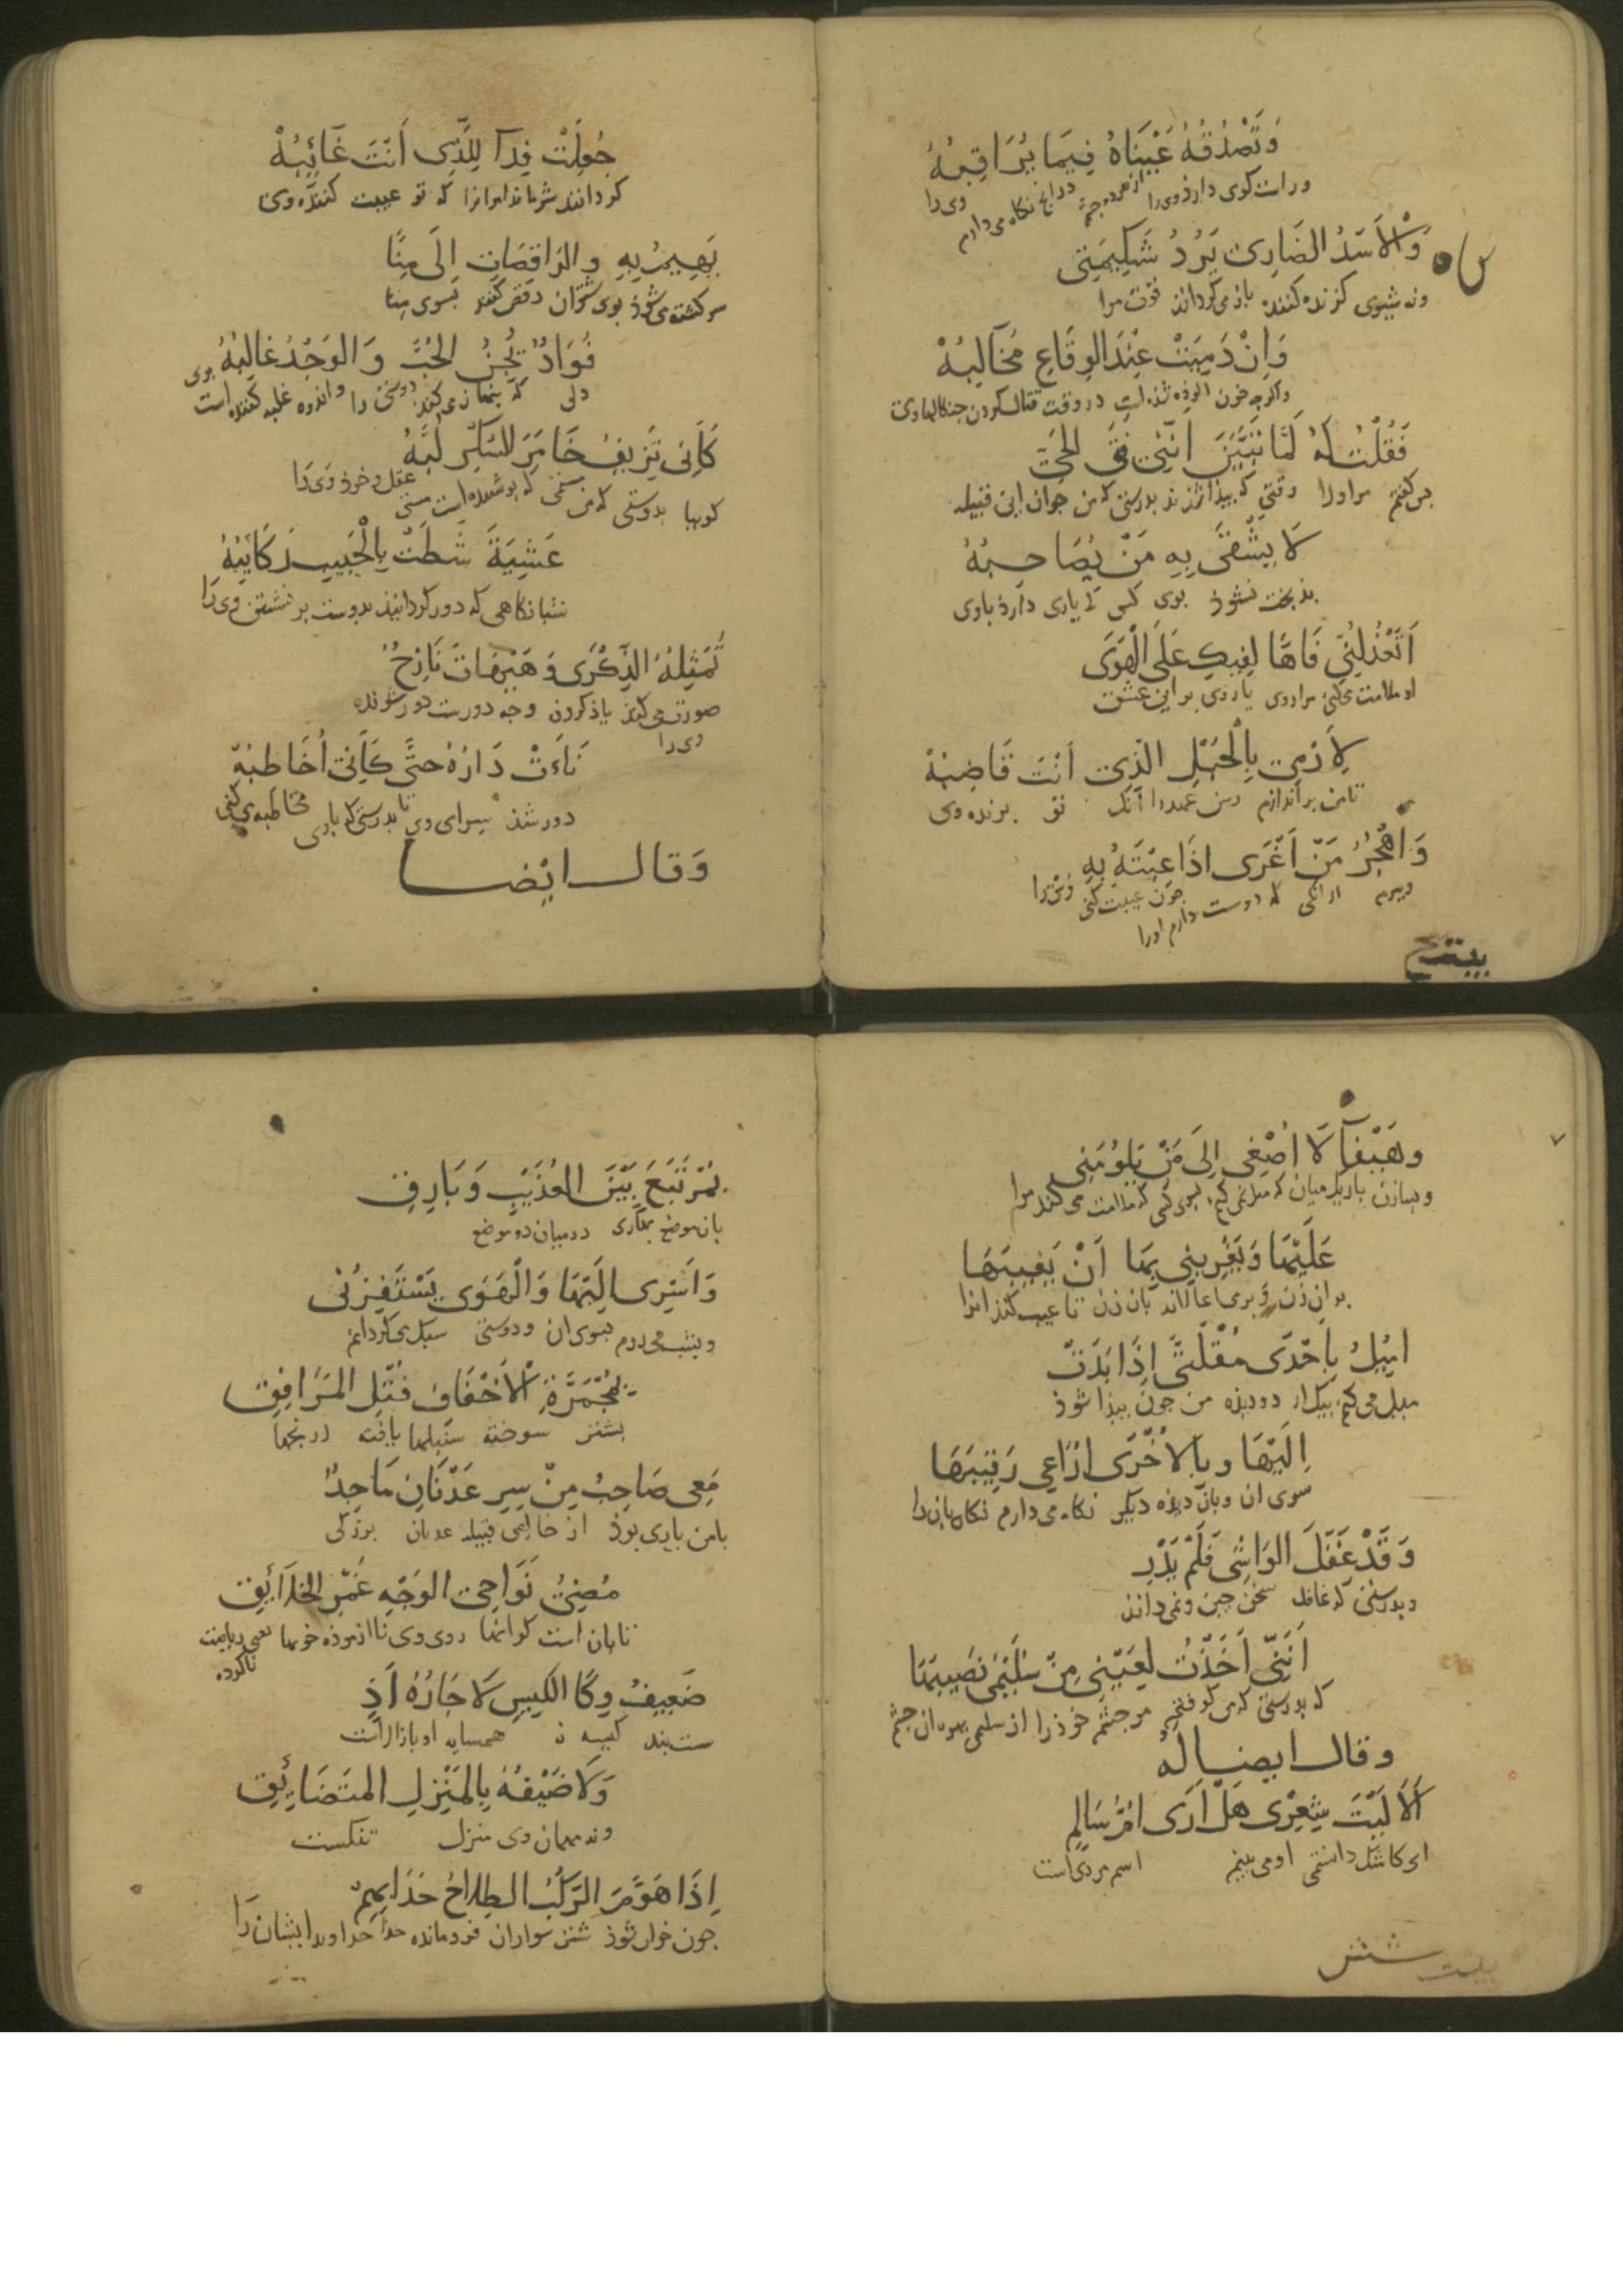 وَتَصْدُقُهُ عَيْنَاهُ فِيمَا يُرَاقِبُهُ
وراست کوی دارذ وی را از هر دو چشم در انچ نکاه می دارم وی را
وَلَا الأَسَدُ الضَارِى يَرُدُّ شَكِيمَتِى
ونه شیری کزنده کننده باز می کرداند قوت مرا
وَاِنْ دَمِيَتْ عِنْدَ الوِقَاعِ مَخَالِبُهْ
واکرچه خون الوذه شذه است در وقت قتال کردن جنکالهاوی
فَقُلْتُ لَهُ لَمَّا تَبَيَّنَ اَنَّنِى فَتَى الحَىِّ
بس کفتم مر اورا وقتی که بیذا شذ بدرستی که من جوان این قبیله
لَا يَشْقَى بِهِ مَنْ يُصَاحِبُهُ
بدبخت نشوذ بوی کسی که یاری دارذ باوی
اَتَعْذُلُنِى فَاهًا لِفِيكَ عَلَى الْهَوَى
او ملامت می کنی مرا روی با روی بر این عشق
لِاَرْمِىَ بِالْحَبْلِ الَّذِى اَنْتَ قَاضِبُهْ
تا من بر اندازم رسن عهد را آنک تو برنده وی
وَاَهْجُرُ مَنْ اَغْرَى اِذَا عِبْتَهُ بِهِ
وببرم از انکی که دوست دارم اورا جون عیبت کنی وی را
جُعِلْتَ فِدًا لِلَّذِى اَنْتَ عَائِبُهْ
کردانند شرماند امرانرا که تو عیبت کننده وی
يَهِيمُ بِهِ وَالرَاقِصَاتِ اِلَى مِنًا
سرکشته می شوذ بوی شتران رقص کنند بسوی منا
فُوَادٌ يُجِنُّ الحُبَّ وَالوَجْدُ غَالِبُهْ
دلی که بنهان می کند دوستی را واندوه غلبه کننده است بوی
كَأَنِّى نَزِيفٌ خَامَرَ السُكْرُ لُبَّهُ
کویا بدوستی که من مستی که بوشیده است مستی عقل وخرذ وی را
عَشِيَةَ شَطَّتْ بِالْحَبِيبِ رَكَائِبُهْ
شبانکاهی که دور کردانیذ بدوست بر نشستن وی را
تُمَثِّلُهُ الذِّكْرَى وَهَيْهَاتَ نَازِحٌ
صورت می کند یاذ کردن وچه دورست دور شونده
وی را
نَاَءَتْ دَارُهُ حَتَّى كَأَنِّى اُخَاطِبُهْ
دور شذ سرای وی تا بدرستی که باوی مخاطبه می کنی
وَقالَ ايْضا
بیست
وهَيْفَآ لَا اُصْغِى اِلَى مَنْ يَلُومُنِى
وبسا زن باریک میان که میل نمی کنم بسوی کسی که ملامت می کند مرا
عَلَيْهَا وَيُغْرِينِى بِهَا اَنْ يَعِيبَهَا
بر ان زن وبر می اغالاند بان زن تا عیب کند انرا
اَمِيْلُ بِاِحْدَى مُقْلَتَىَّ اِذَا بَدَتْ
میل می کنم بیکی از دو دیذه من جون بیذا شوذ
اِلَيْهَا وبِالاُخْرَى اُرَاعِى رَقِيبَهَا
سوی ان وبان دیذه دیکر نکاه می دارم نکاه بان را
وَقَدْ غَفَلَ الوَاشِى فَلَمْ يَدْرِ
وبدرستی که غافل سخن جین ونمی داند
اَنَنِّى اَخَذْتُ لِعَيْنِى مِنْ سُلَيْمَى نَصِيبَهَا
که بدرستی که من کرفتم مر جشم خوذ را از سلمی بهره ان جشم
وقال ايضا لهُ
اَلَا لَيْتَ شِعْرِى هَلْ اَرَى اُمَّ سَالِمٍ
ای کاشکی دانستمی او می بینم اسم مردی است
بیست شش
بِمُرْتَبَعٍ بَيْنَ العُذَيْبِ وَبَارِقِ
بان موضع بهاری در میان دو موضع
وَاَسْرِى اِلَيْهَا وَالْهَوَى يَسْتَفِزُّنِى
وبشب می روم بسوی ان ودوستی سبک می کردانم
بِمُجْمَرَةِ الاَخْفَافِ فُتْلِ المَرَافِقِ
بشتر سوخته سنبلها بافته ارنجها
مَعِى صَاحِبٌ مِنْ سِرِّ عَدْنَانَ مَاجِدٌ
با من یاری بوذ از خالصی قبیله عدنان بزرکی
مُضِئُ نَوَاحِى الوَجْهِ غَمْرُ الخَلَائِقِ
تابان است کرانها روی وی نا ازموذه خویها یعنی ریاضت
ناکرده
ضَعِيفُ وِكَا الكِيسِ لَا جَارُهُ اَذٍ
سست بند کیسه نه همسایه او بازار است
وَلَا ضَيْفُهُ بِالمَنْزِلِ المتَضَائِقِ
ونه مهمان وی منزل تنکست
اِذَا هَوَّمَ الرَكْبُ الطِلَاحُ حَدَا بِهِمْ
جون خوار شوذ شتر سواران فرو مانده حدا ایشان را